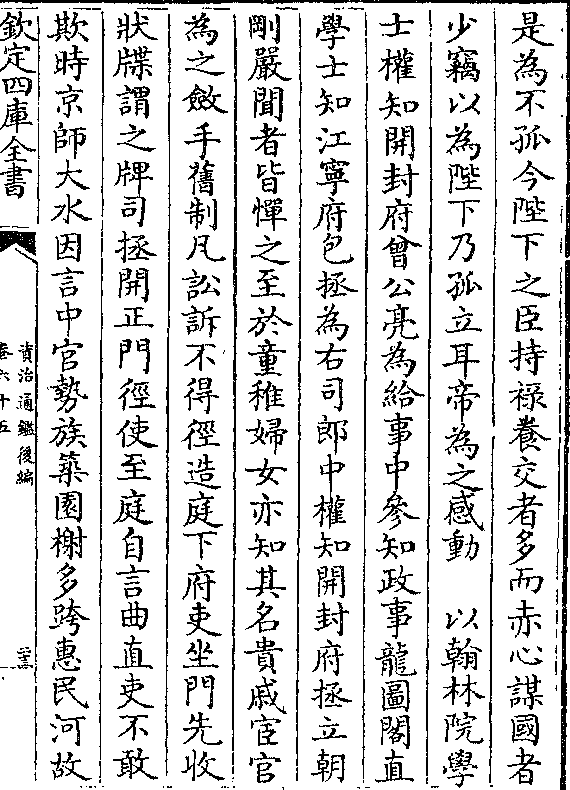 是為不孤今陛下之臣持祿養交者多而赤心謀國者
少竊以為陛下乃孤立耳帝為之感動　以翰林院學
士權知開封府曾公亮為給事中參知政事龍圖閣直
學士知江寧府包拯為右司郎中權知開封府拯立朝
剛嚴聞者皆憚之至於童稚婦女亦知其名貴戚宦官
為之斂手舊制凡訟訴不得徑造庭下府吏坐門先收
狀牒謂之牌司拯開正門徑使至庭自言曲直吏不敢
欺時京師大水因言中官勢族築園榭多跨惠民河故
欽定四庫全書
資治通鑑後編
卷六十五